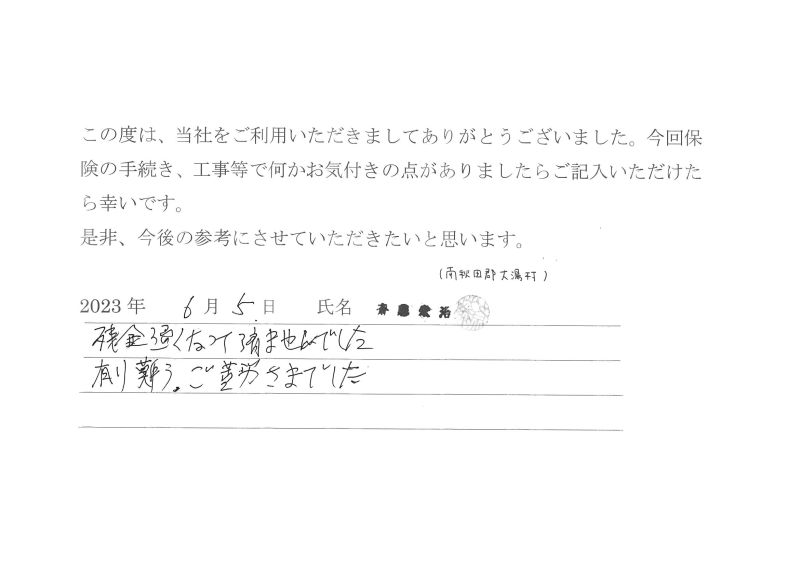 この度は、当社をご利用いただきましてありがとうございました。今回保
険の手続き、工事等で何かお気付きの点がありましたらご記入いただけた
ら幸いです。
是非、今後の参考にさせていただきたいと思います。
(南秋田郡大潟村)
2023 年 6 月 5 日 氏名
残金遅くなって済ませんでした
有り難う。ご苦労さまでした